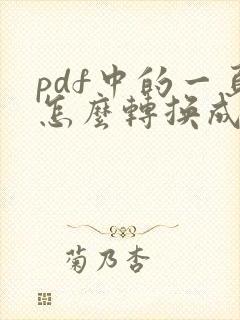 pdf中的一頁
怎麼轉換成
菊乃杏